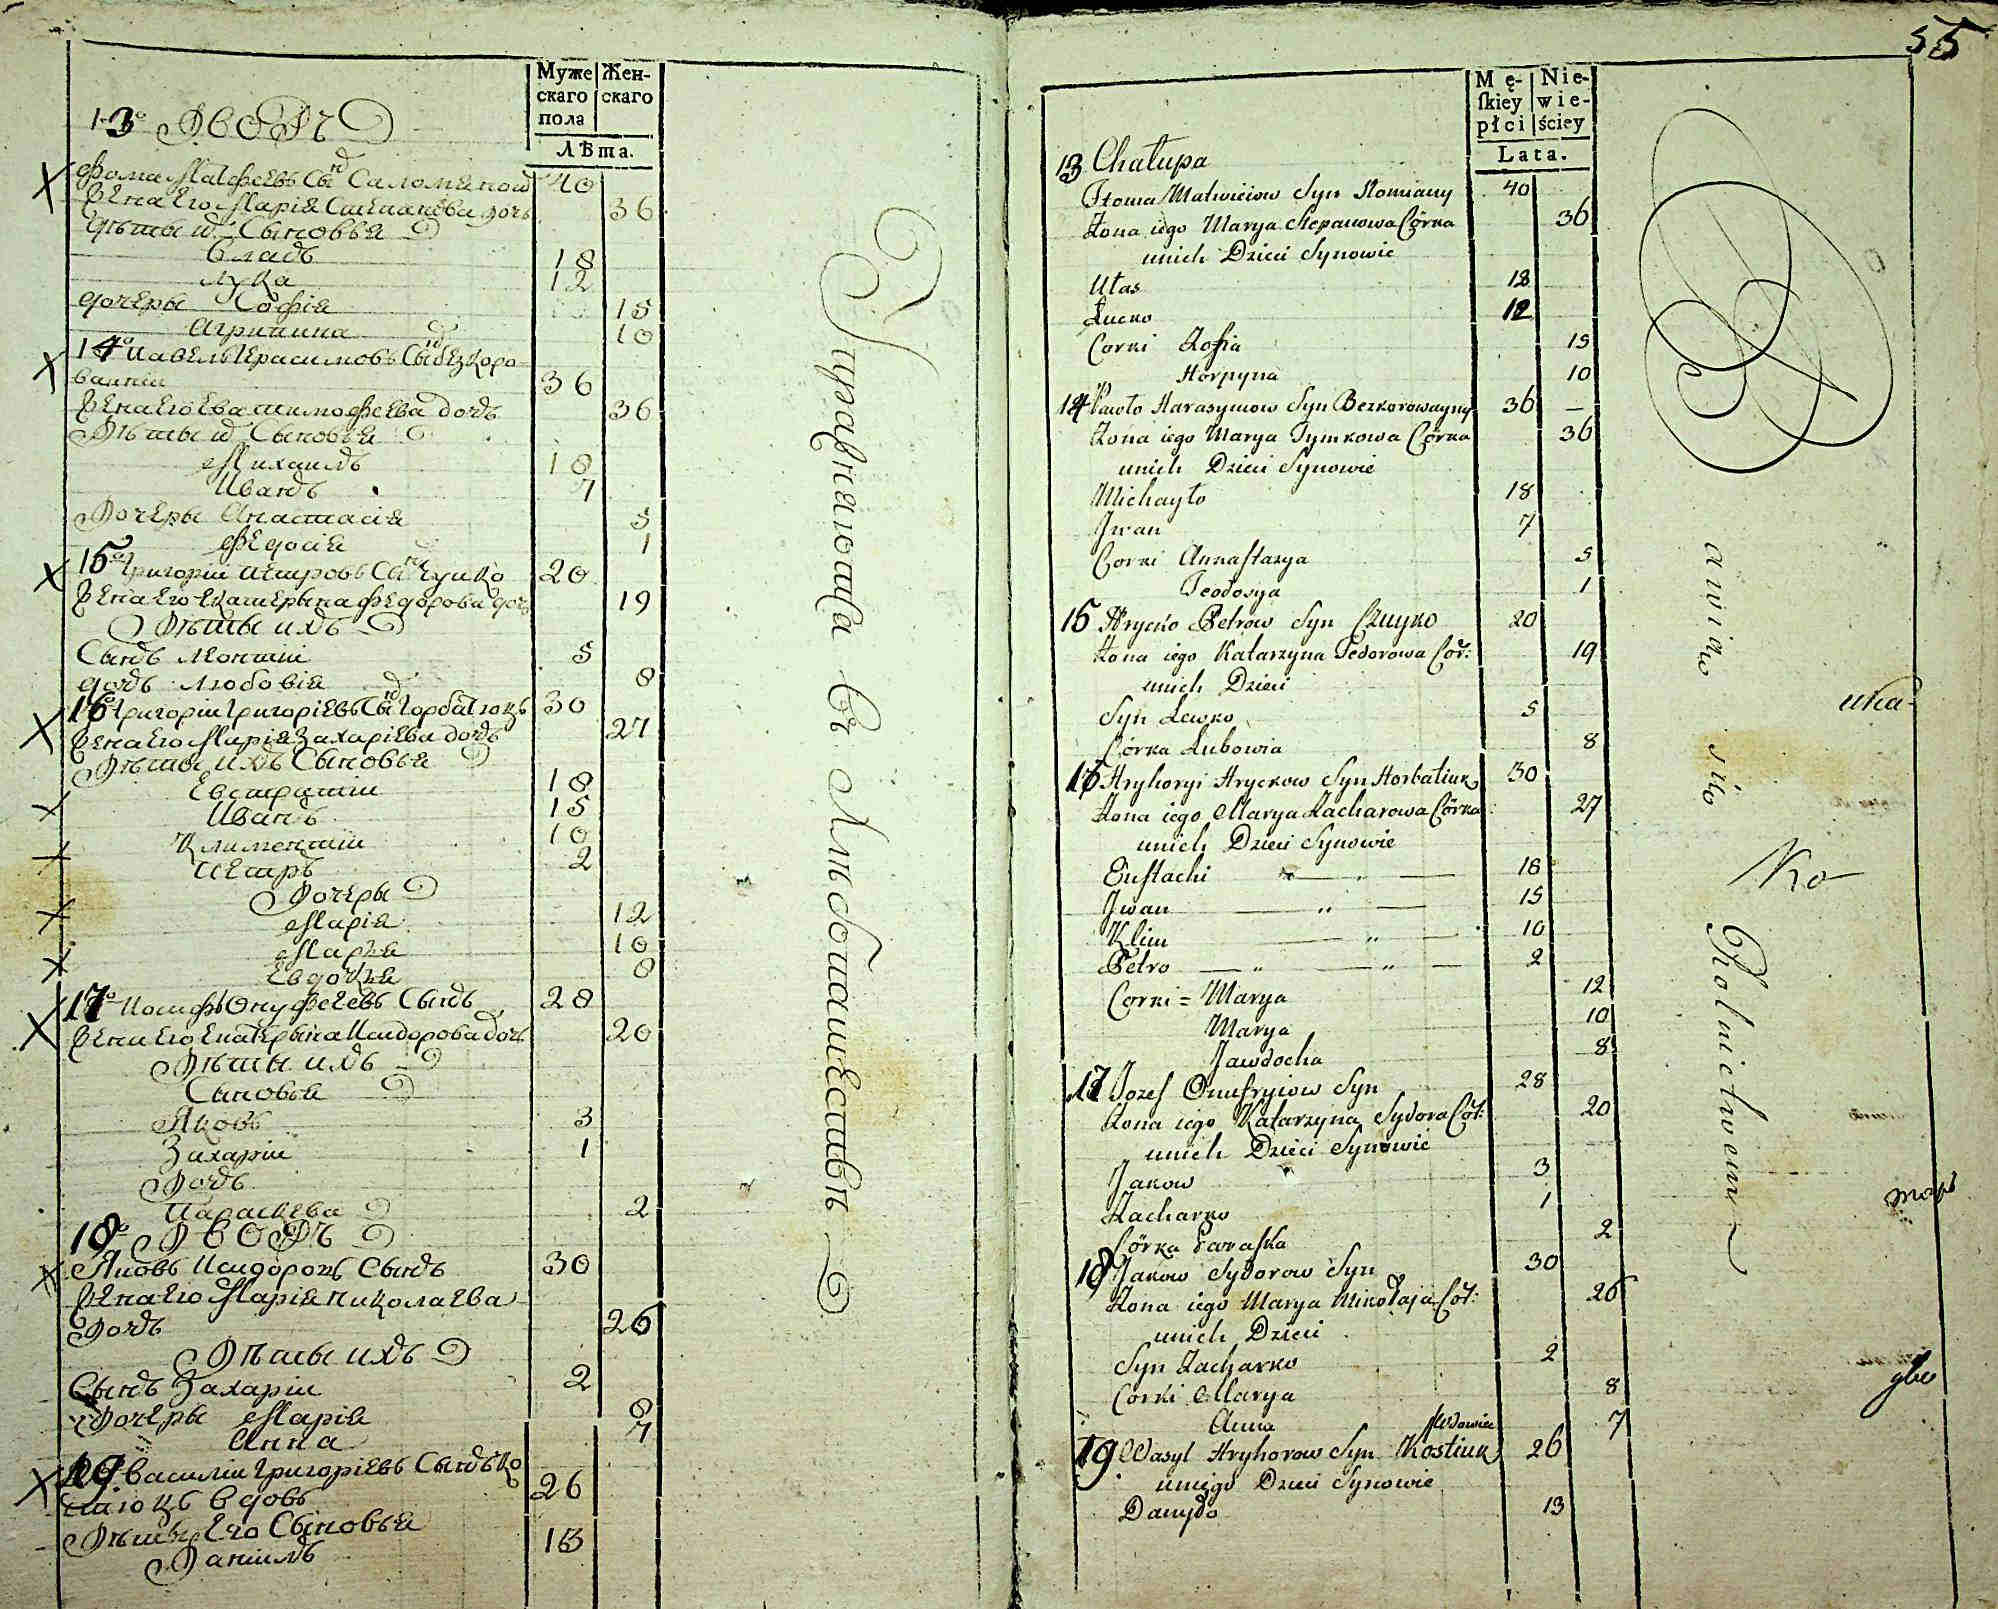 Муже
скаго
пола
Жен-
скаго
Лѣта.
13 Дворъ
Фома Матфеевъ Сынъ 40
Жена Его Марія Степанова дочь 36
Дѣты ихъ Сыновья
Власъ 18
Лука 12
дочеры Софія 15
Агрипина 10
14 Павелъ Герасимовъ Сынъ Безкоро-
вайній 36
Жена Его Ева Тимофеева дочь 36
Дѣты их Сыновья
Михаилъ 18
Иванъ 7
Дочеры Анастасія 5
Федосія 1
15 Григорій Петровъ Сынъ Чуйко 20
Жена Его Екатерына Федорова дочь 19
Дѣты ихъ
Сынъ Леонтій 5
дочь Любовія 8
16 Григорій Григоріевъ Сынъ Горбатюкъ 30
Жена Его Марія Захаріева дочь 27
Дѣты ихъ Сыновья
Евстратій 18
Иванъ 15
Климентій 10
Петръ 2
Дочеры
Марія 12
Марія 10
Евдокія 8
17 Іосифъ Онуфреевъ Сынъ 28
Жена Его Екатерына Исидорова дочь 20
Дѣты ихъ
Сыновья
Яковъ 3
Захарій 1
Дочь
Параскева 2
18 Дворъ
Яковъ Исидоровъ Сынъ 30
Жена Его Марія Николаева
Дочь 26
Дѣты ихъ
Сынъ Захарій 2
Дочеры Марія 8
Анна 7
19 Василій Григоріевъ Сынъ Ко
вдовъ 26
Дѣты Его Сыновья
Даніилъ 13
Упражняются въ Хлѣбопашествѣ
55
Mę-
skiey
płci
Nie-
wie-
ściey
Lata.
13 Chałupa
Tłoma Matwieiow Syn Słomiany 40
Żona iego Marya Stepanowa Córka 36
unich Dzieci Synowie
Ułas 18
Łucko 12
Corki Zofia 15
Horpyna 10
14 Pawło Harasymow Syn Bezkorowayny 36 —
Żona iego Marya Tymkowa Córka 36
unich Dzieci Synowie
Michayło 18
Jwan 7
Corki Annastazya 5
Teodosya 1
15 Hrycko Petrow Syn Czuyko 20
Żona iego Katarzyna Fedorowa Cór: 19
unich Dzieci
Syn Lewko 5
Córka Lubowia 8
16 Hryhoryi Hryckow Syn Horbatiuk 30
Żona iego Marya Zacharowa Córka 27
unich Dzieci Synowie
Eustachi 18
Jwan 15
Klim 10
Petro 2
Corki = Marya 12
Marya 10
Jawdocha 8
17 Jozef Onufryiow Syn 28
Żona iego Katarzyna Sydora Cór: 20
unich Dzieci Synowie
Jakow 3
Zacharko 1
Córka Paraska 2
18 Jakow Sydorow Syn 30
Żona iego Marya Mikołaja Cór: 26
unich Dzieci
Syn Zacharko 2
Corki Marya 8
Anna 7
Wdowiec
19 Wasyl Hryhorow Syn Kostiuk 26
uniego Dzieci Synowie
Danyło 13
Bawią się Rolnictwem
Ko